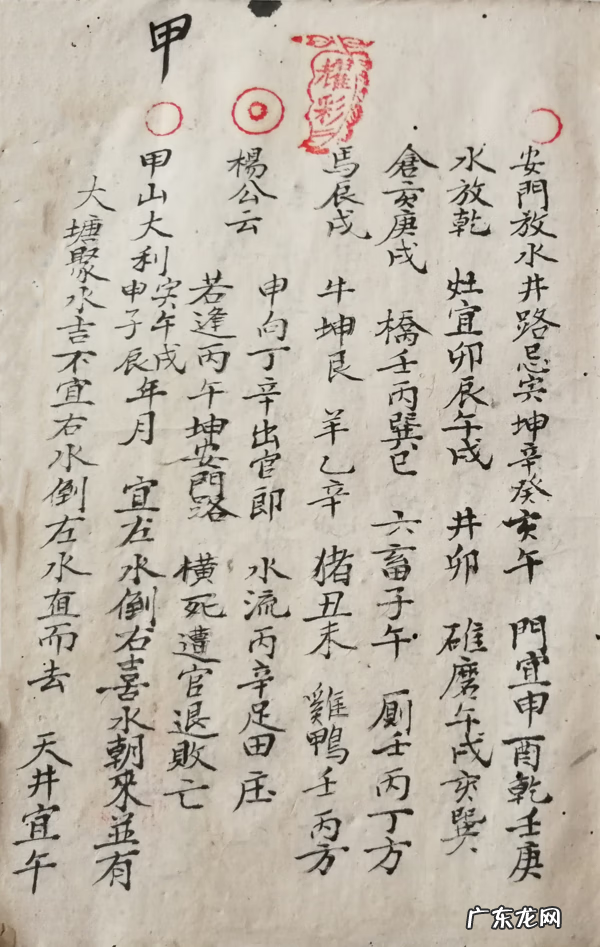 甲
耀彩
安門放水井路忌寅坤辛癸亥午　門宜申酉乾壬庚
水放乾　灶宜卯辰午戌　井卯　碓磨午戌亥巽
倉亥庚戌　橋壬丙巽巳　六畜子午　厠壬丙丁方
馬辰戌　牛坤艮　羊乙辛　猪丑未　雞鴨壬丙方
楊公云　申向丁辛出官郎　水流丙辛足田庄
若逢丙午坤安門路　橫死遭官退敗亡
甲山大利寅午戌申子辰年月　宜左水倒右喜水朝來並有
大塘聚水吉不宜右水倒左水直而去　天井宜午
广东龙网